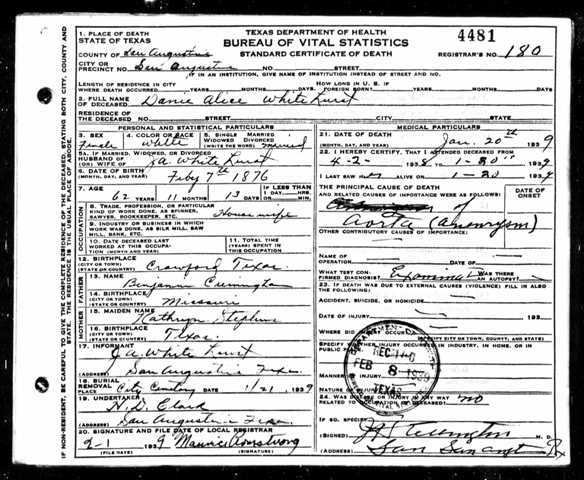 1. PLACE OF DEATH
STATE OF TEXAS
TEXAS DEPARTMENT OF HEALTH
BUREAU OF VITAL STATISTICS
STANDARD CERTIFICATE OF DEATH
4481
REGISTRAR'S NO. 180
COUNTY OF San Augustine
CITY OR
PRECINCT NO. San Augustine NO. STREET
IF IN AN INSTITUTION, GIVE NAME OF INSTITUTION INSTEAD OF STREET AND NO.
LENGTH OF RESIDENCE IN CITY
WHERE DEATH OCCURRED YEARS MONTHS DAYS
HOW LONG IN U.S. IF
FOREIGN BORN? YEARS MONTHS DAYS
2. FULL NAME
OF DECEASED Alice White Hurst
RESIDENCE OF
THE DECEASED NO. STREET CITY STATE
PERSONAL AND STATISTICAL PARTICULARS
3. SEX
Female
4. COLOR OR RACE
White
5. SINGLE MARRIED
WIDOWED DIVORCED
(WRITE THE WORD) married
5A. IF MARRIED, WIDOWED, OR DIVORCED
HUSBAND OF
(OR) WIFE OF J.A. White Hurst
6. DATE OF BIRTH
(MONTH, DAY, AND YEAR) Feby 7th 1876
7. AGE
62 YEARS 11 MONTHS 13 DAYS
IF LESS THAN
1 DAY, HRS.
MIN.
8. TRADE, PROFESSION, OR PARTICULAR
KIND OF WORK DONE, AS SPINNER,
SAWYER, BOOKKEEPER, ETC. House wife
9. INDUSTRY OR BUSINESS IN WHICH
WORK WAS DONE, AS SILK MILL, SAW
MILL, BANK, ETC.
10. DATE DECEASED LAST
WORKED AT THIS
OCCUPATION
11. TOTAL TIME
(YEARS) SPENT IN
THIS OCCUPATION
12. BIRTHPLACE
(CITY OR TOWN)
(STATE OR COUNTRY) Crawford Texas
FATHER
13. NAME
Benjamin
14. BIRTHPLACE
(CITY OR TOWN)
(STATE OR COUNTRY) Missouri
MOTHER
15. MAIDEN NAME
Kathryn Stephens
16. BIRTHPLACE
(CITY OR TOWN)
(STATE OR COUNTRY) Texas
17. INFORMANT
J.A. White Hurst
ADDRESS San Augustine Texas
18. BURIAL
REMOVAL City Cemetery 1/21 1939
19. UNDERTAKER
H.D. Clark
ADDRESS San Augustine Texas
20. SIGNATURE AND FILE DATE OF LOCAL REGISTRAR
2-1 1939 Maurice Armstrong
(FILE DATE) (SIGNATURE)
MEDICAL PARTICULARS
21. DATE OF DEATH
(MONTH, DAY, AND YEAR) Jan. 20th 1939
22. I HEREBY CERTIFY THAT I ATTENDED DECEASED FROM
4-2- 1938 1-20 1939
I LAST SAW ALIVE ON 1-20 1939
THE PRINCIPAL CAUSE OF DEATH
AND RELATED CAUSES OF IMPORTANCE WERE AS FOLLOWS:
DATE OF
ONSET
of
Aorta (Aneurysm)
OTHER CONTRIBUTORY CAUSES OF IMPORTANCE:
NAME OF
OPERATION DATE OF
WHAT TEST CON-
FIRMED DIAGNOSIS? WAS THERE
AN AUTOPSY?
23. IF DEATH WAS DUE TO EXTERNAL CAUSES (VIOLENCE) FILL IN ALSO
THE FOLLOWING:
ACCIDENT, SUICIDE, OR HOMICIDE?
DATE OF INJURY
WHERE DID INJURY
OCCUR?
CITY OR TOWN, COUNTY, AND STATE
SPECIFY WHETHER INJURY OCCURRED IN INDUSTRY, IN HOME, OR IN
PUBLIC PLACE.
MANNER OF INJURY
NATURE OF INJURY
DEPARTMENT OF HEALTH
REC'D
FEB 8 1939
TEXAS
24. WAS DISEASE OR INJURY IN ANY WAY
RELATED TO OCCUPATION OF DECEASED? no
IF SO, SPECIFY
(SIGNED) M.D.
(ADDRESS) San Augustine